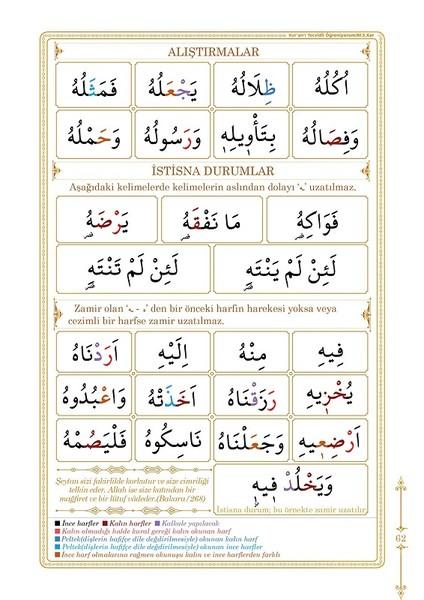 Kur'an'ı Tecvidli Öğreniyorum/M.S.Kar
ALIŞTIRMALAR
اُكُلُهُ ظِلَالُهُ يَجْعَلُهُ فَمَثَلُهُ
وَفِصَالُهُ بِتَأْوِيلِهِ وَرَسُولُهُ وَحَمْلُهُ
İSTİSNA DURUMLAR
Aşağıdaki kelimelerde kelimelerin aslından dolayı 'ه' uzatılmaz.
فَوَاكِهُ مَا نَفْقَهُ يَرْضَهُ
لَئِنْ لَمْ يَنْتَهِ لَئِنْ لَمْ تَنْتَهِ
Zamir olan 'ه - ـه' den bir önceki harfin harekesi yoksa veya
cezimli bir harfse zamir uzatılmaz.
فِيهِ مِنْهُ اِلَيْهِ اَرَدْنَاهُ
يُخْزِيهِ رَزَقْنَاهُ اَخَذَتْهُ وَاعْبُدُوهُ
اَرْضِعِيهِ وَجَعَلْنَاهُ نَاسِكُوهُ فَلْيَصُمْهُ
Şeytan sizi fakirlikle korkutur ve size cimriliği
telkin eder. Allah ise size katından bir
mağfiret ve bir lütuf vâdeder.(Bakara/268)
وَيَخْلُدْ فِيهِ
İstisna durum; bu örnekte zamir uzatılır.
İnce harfler Kalın harfler Kalkale yapılacak
Kalın olmadığı halde kural gereği kalın okunan harf
Peltek(dişlerin hafifçe dile değdirilmesiyle) okunan kalın harf
Peltek(dişlerin hafifçe dile değdirilmesiyle) okunan ince harfler
İnce harf olmalarına rağmen okunuşu kalın ve ince harflerden farklı
62